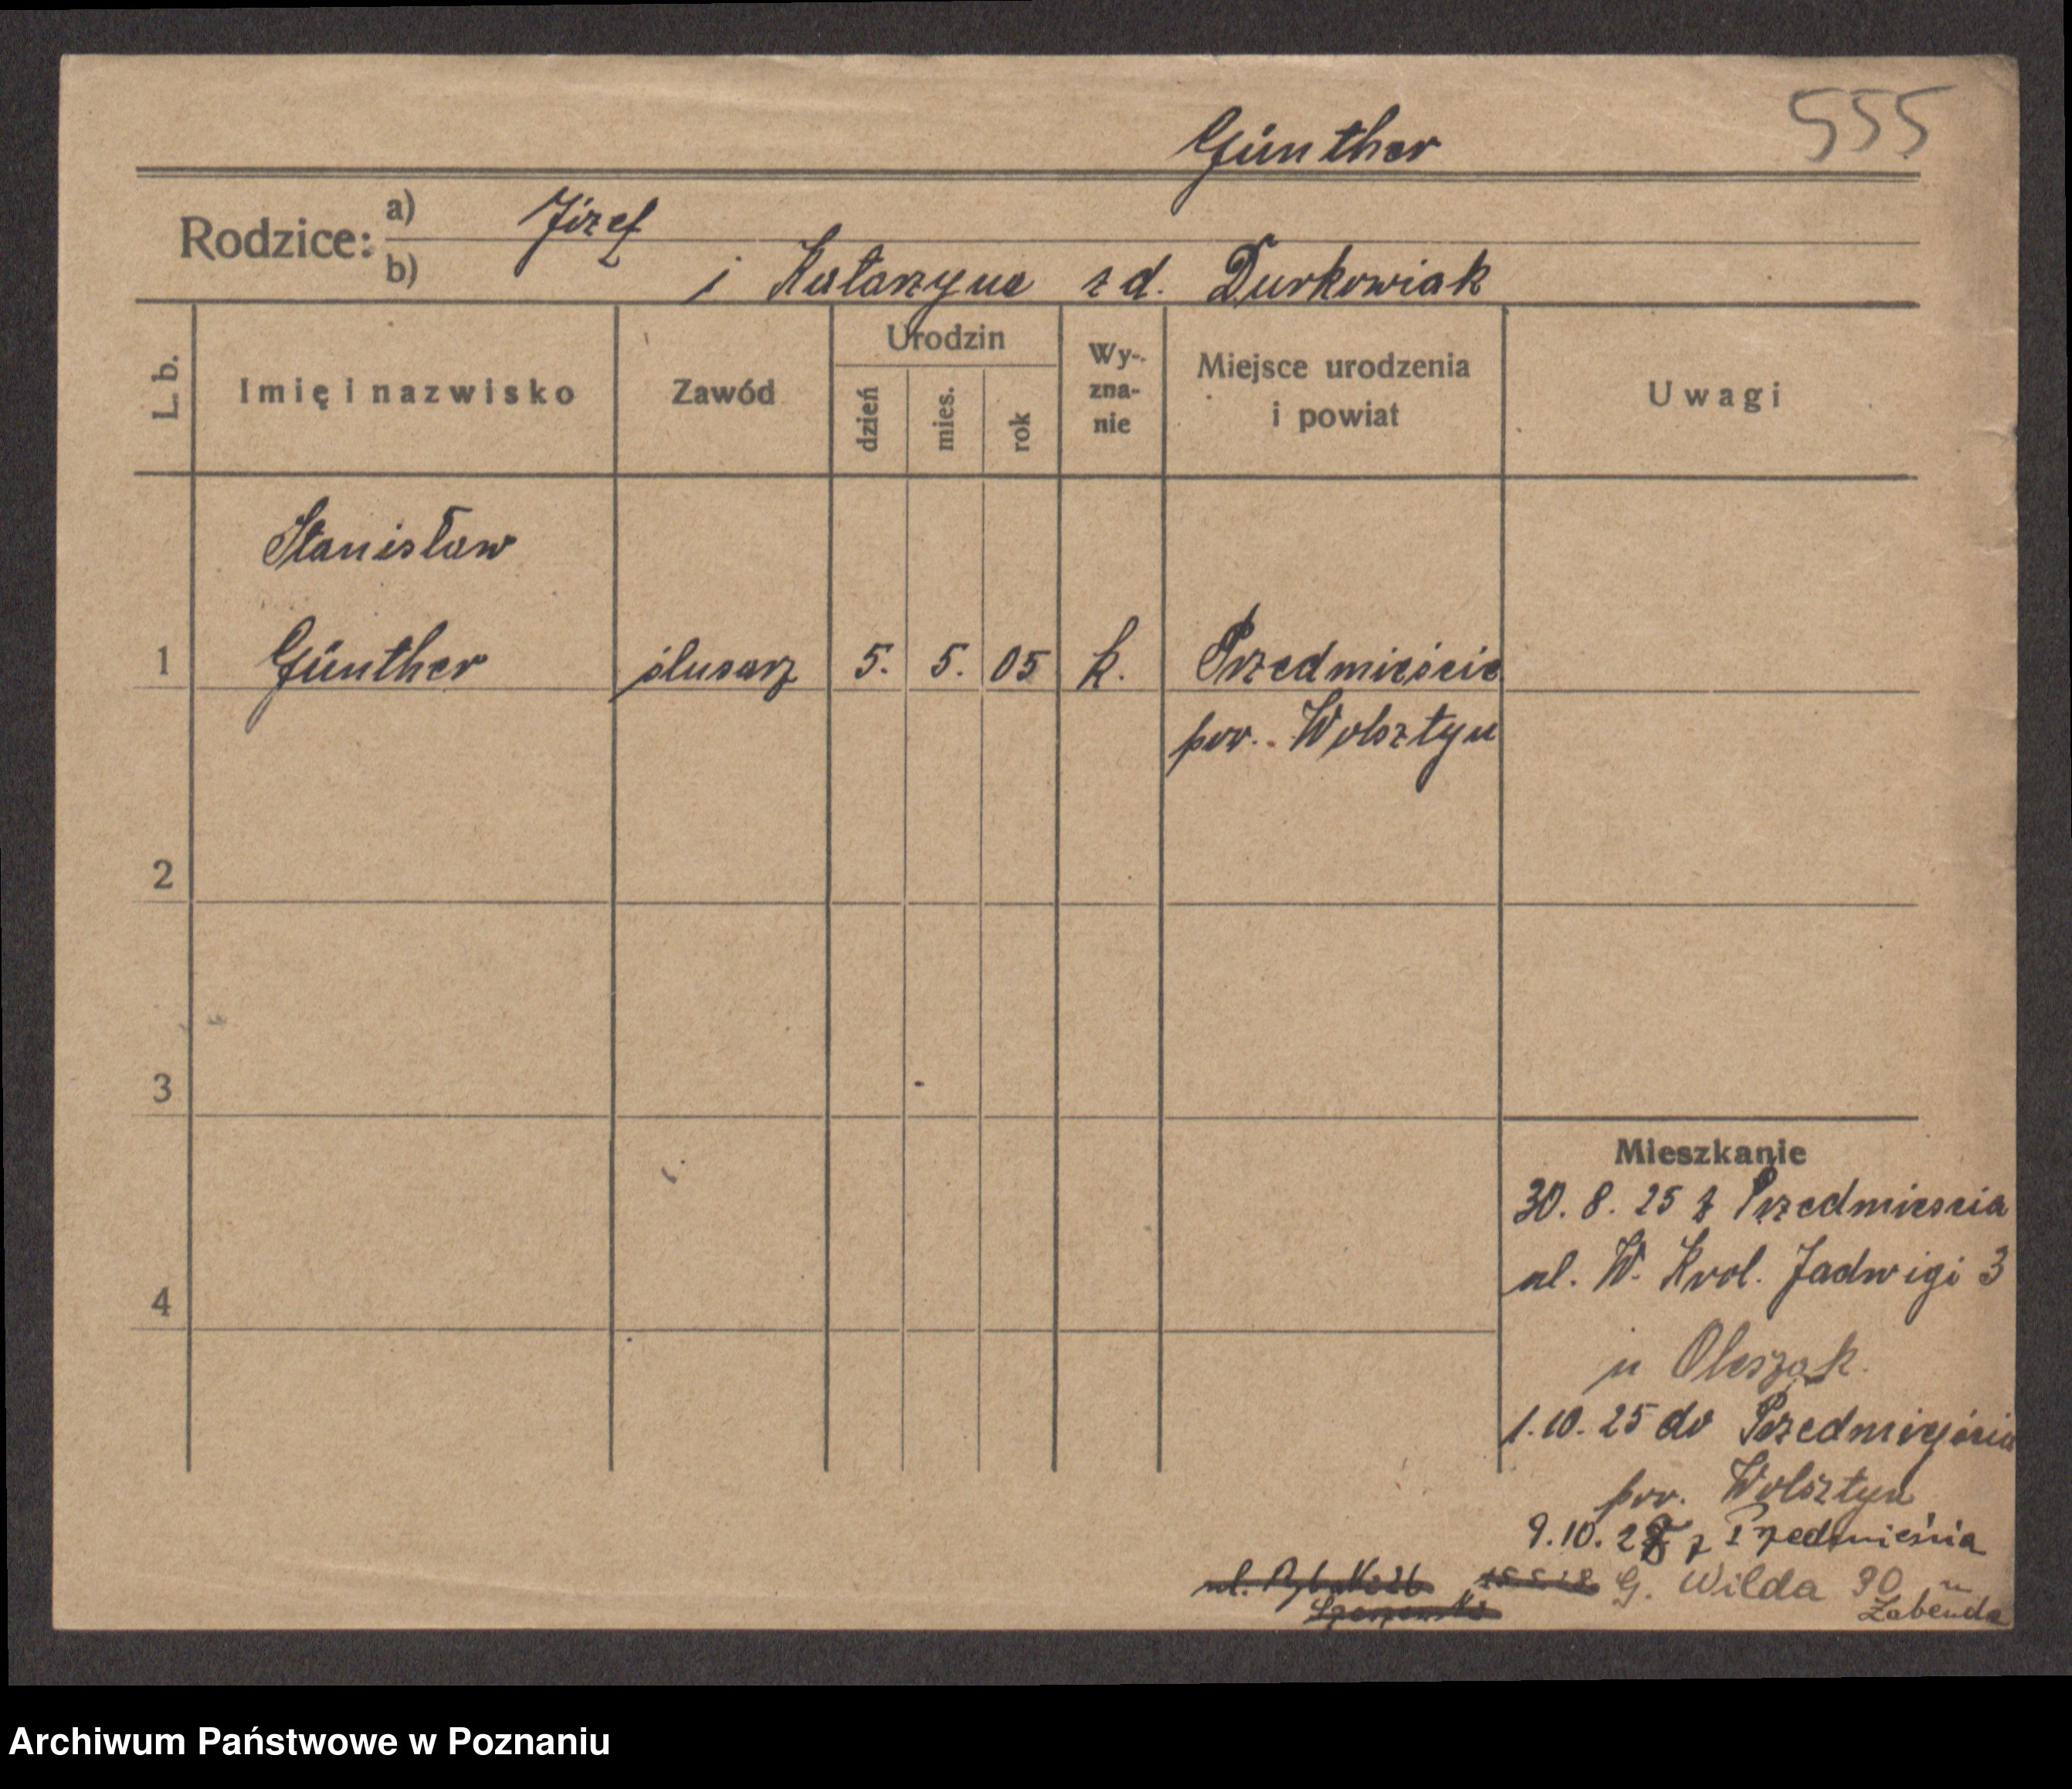 Günther
555
Rodzice:
a) Józef
b) i Katarzyna z d. Durkowiak
L. b.
Imię i nazwisko
Zawód
Urodzin
dzień
mies.
rok
Wy-
zna-
nie
Miejsce urodzenia
i powiat
Uwagi
Stanisław
1 Günther ślusarz 5. 5. 05 k. Przedmieście
pow. Wolsztyn
2
3
4
Mieszkanie
30. 8. 25 z Przedmieścia
ul. W. Krol. Jadwigi 3
u Oleszak.
1. 10. 25 do Przedmieścia
pow. Wolsztyn
9. 10. z Przedmieścia
G. Wilda 90 u
Żabenda
Archiwum Państwowe w Poznaniu